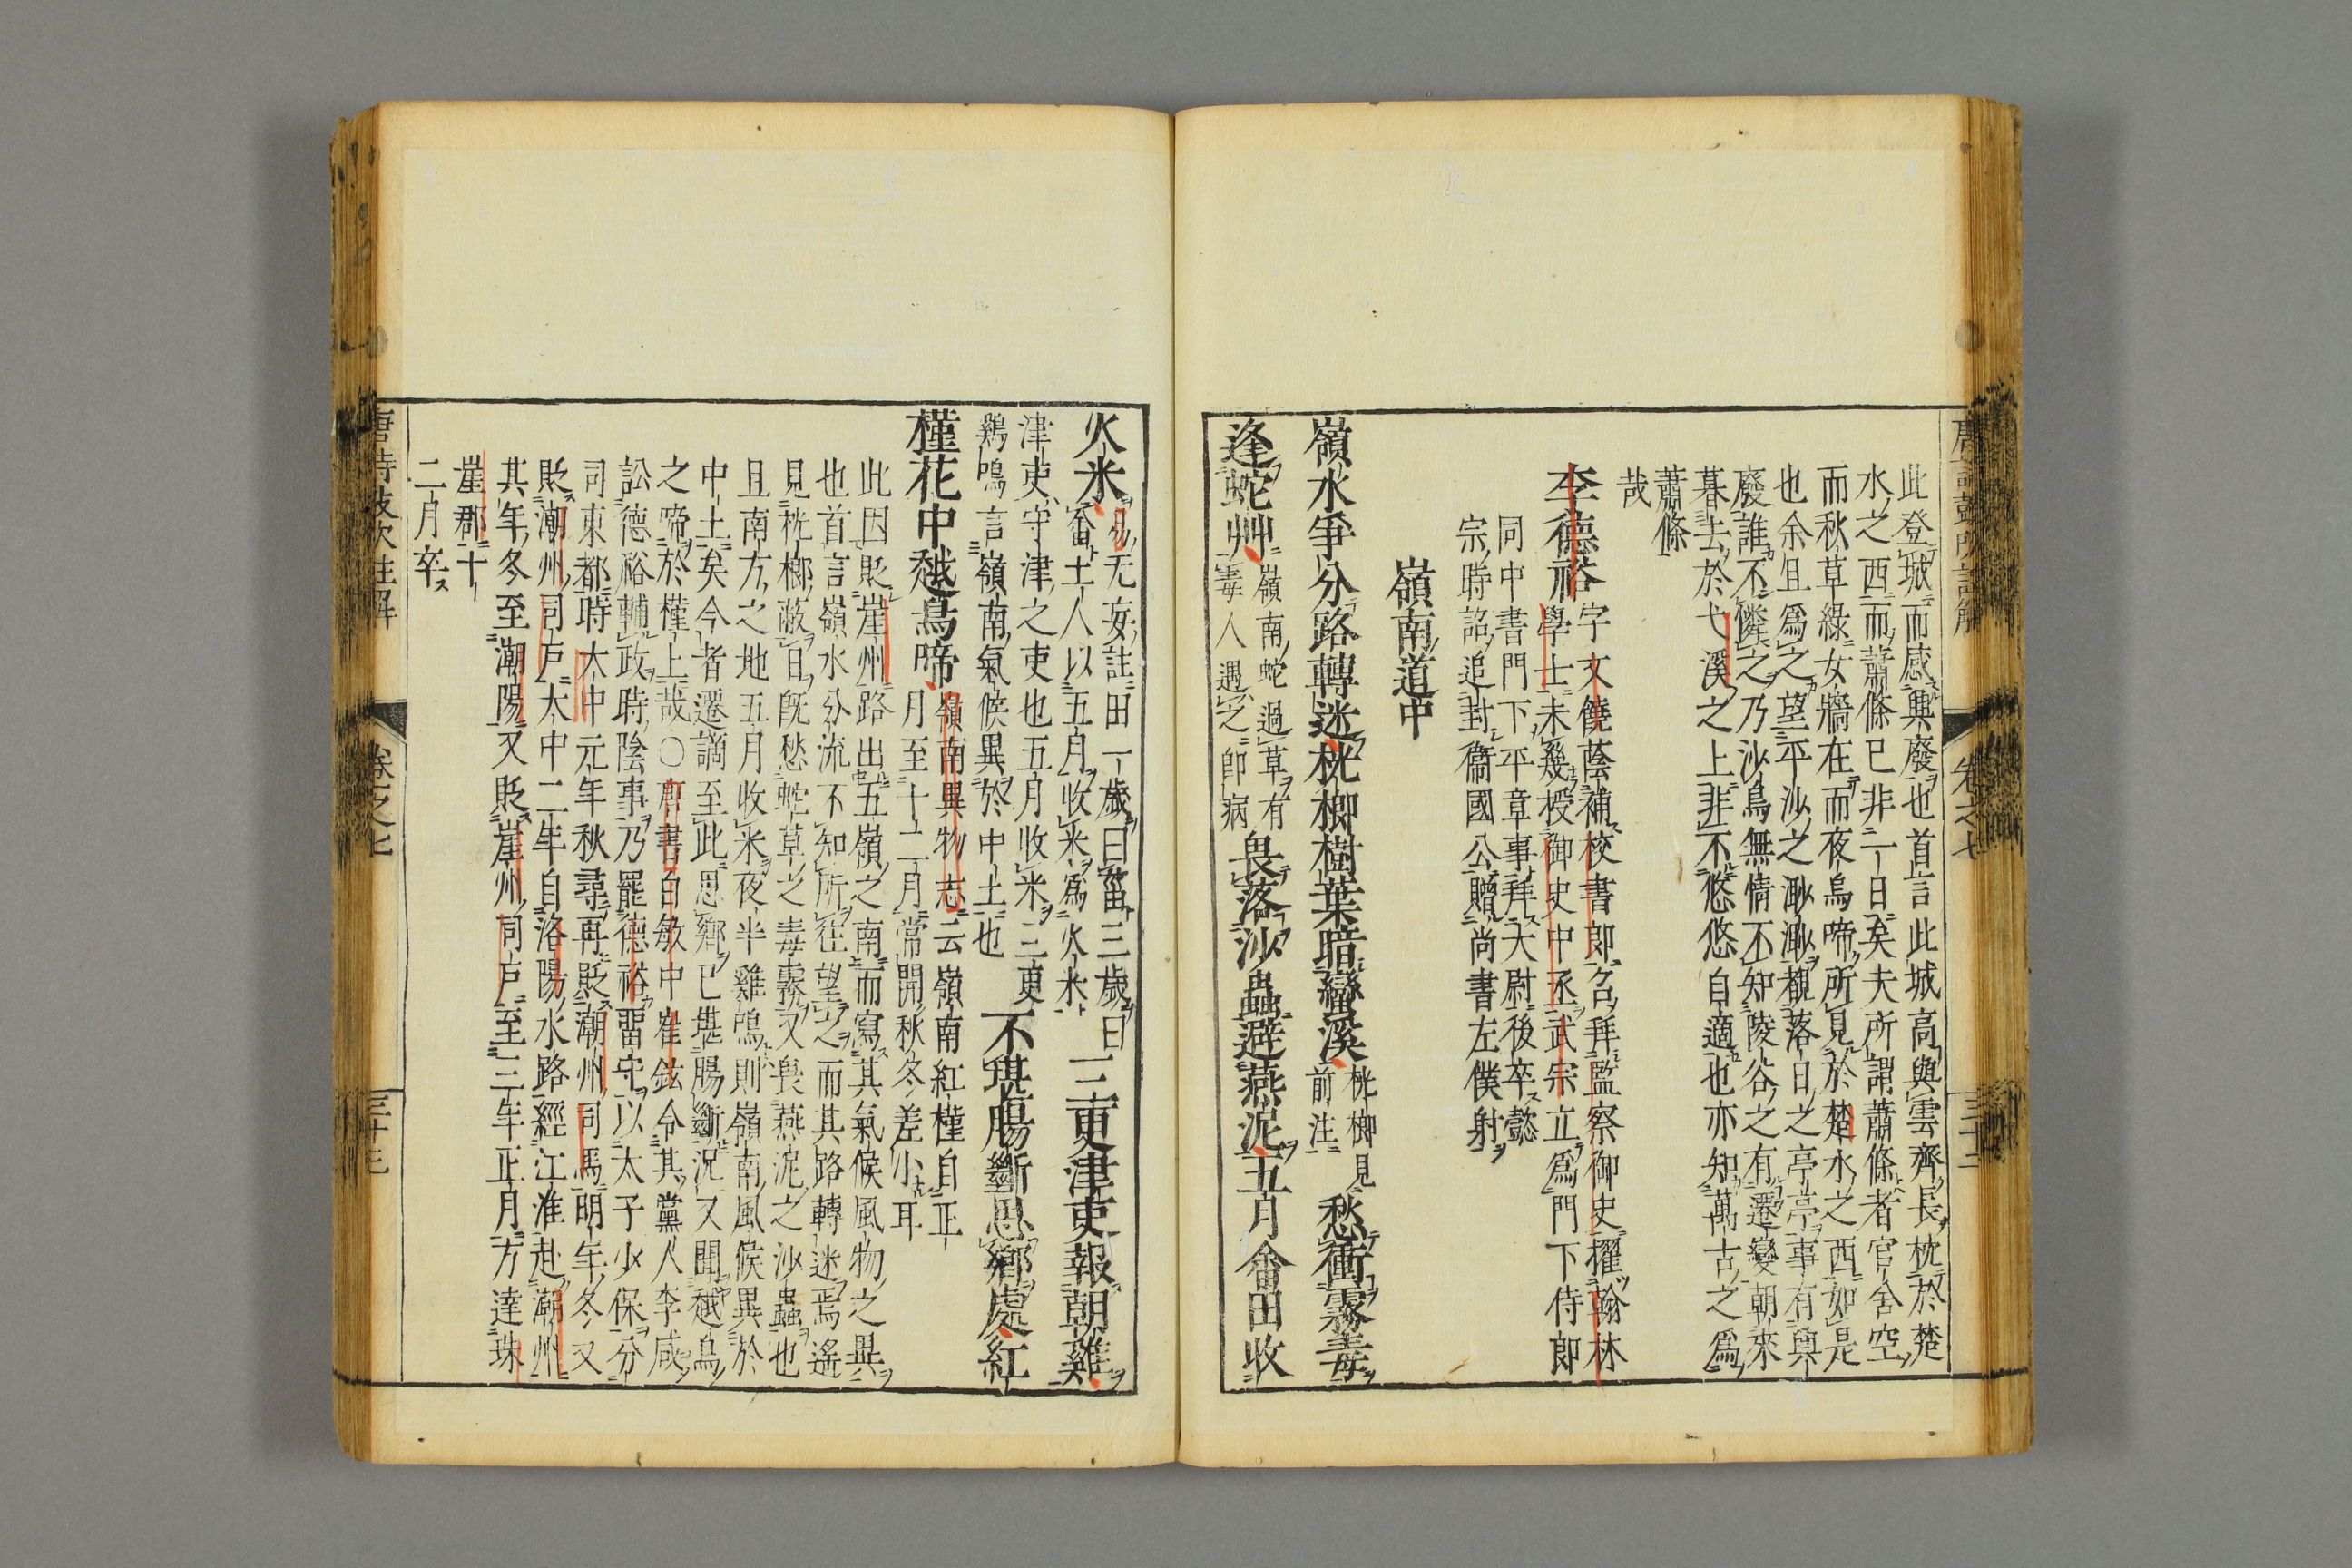 此登城而感興廢也首言此城高與雲齊長枕於楚
水之西而蕭條已非一日矣夫所謂蕭條者官舍空
而秋草綠女牆在而夜烏啼所見於楚水之西如是
也余且爲之望平沙之渺渺覩落日之亭亭事有興
廢誰不憐之乃沙鳥無情不知陵谷之有遷變朝來
暮去於弋溪之上非不悠悠自適也亦知萬古之爲
蕭條
哉
李德裕
字文饒蔭補校書郎召拜監察御史擢翰林
學士未幾授御史中丞武宗立爲門下侍郎
同中書門下平章事拜大尉後卒懿
宗時詔追封衞國公贈尚書左僕射
嶺南道中
嶺水爭分路轉迷桄榔樹葉暗蠻溪
桄榔見
前注
愁衝霧毒
逢蛇艸
嶺南蛇過草有
毒人遇之卽病
畏落沙蟲避燕泥五月畬田收
火米
易无妄註田一歲曰菑三歲曰
畬土人以五月收米爲火米
三更津吏報朝雞
津吏守津之吏也五月收米三更
鷄鳴言嶺南氣候異於中土也
不堪腸斷思鄉處紅
槿花中越鳥啼
嶺南異物志云嶺南紅槿自正
月至十二月常開秋冬差小耳
此因貶崖州路出五嶺之南而寫其氣候風物之異
也首言嶺水分流不知所往望之而其路轉迷焉遙
見桄榔蔽日旣愁蛇草之毒霧又畏燕泥之沙蟲也
且南方之地五月收米夜半雞鳴則嶺南風候異於
中土矣今者遷謫至此思鄉已堪腸斷況又聞越鳥
之啼於槿上哉○唐書白敏中崔鉉令其黨人李咸
訟德裕輔政時陰事乃罷德裕留守以太子少保分
司東都時大中元年秋尋再貶潮州司馬明年冬又
貶潮州司戶大中二年自洛陽水路經江淮赴潮州
其年冬至潮陽又貶崖州司戶至三年正月方達珠
崖郡十
二月卒
唐詩鼓吹註解
卷之七